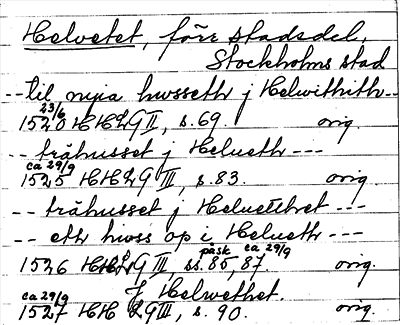 Helvetet, förr stadsdel,
Stockholms stad
-- til nyia hwsseth j Helwithith--
23/6
1520 HHLG II, s. 69. orig.
-- trähusset j Helueth ---
ca 29/9
1525 HHLG III, s. 83. orig.
-- trähusset j Heluetthet ---
-- eth hwss op i Helueth ---
påsk ca 29/9
1526 HHLG III, ss. 85, 87. orig.
J Helwethet.
ca 29/9
1527 HHLG III, s. 90. orig.